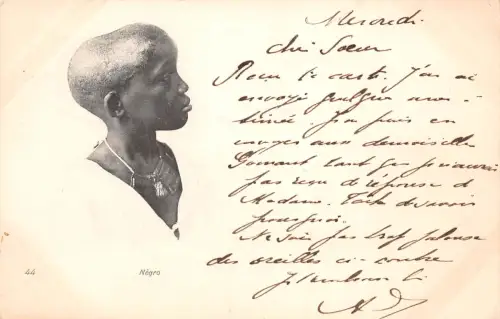 Mercredi.
Chè Soeur
Reçu ta carte. J'ai ai
envoyé quelques unes -
J'en puis en
aux demoiselles
tant que je n'aurai
pas reçu de réponse d
Madame. Tache de savoir
pourquoi.
Ne sois pas trop jalouse
des oreilles ci-contre
Je t'embrasse
A D
44 Négro